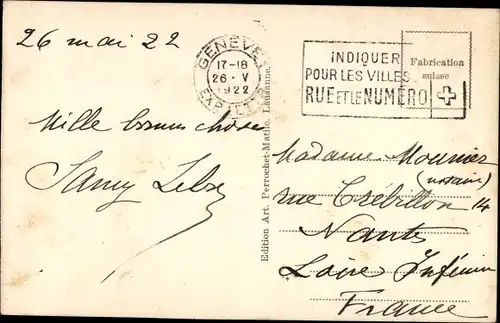 26 mai 22
GENÈVE
17-18
26 · V
1922
EXP. LETT.
INDIQUER
POUR LES VILLES
RUE ET LE NUMÉRO
Fabrication
suisse
Mille bonnes choses
Edition Art. Perrochet-Matile, Lausanne.
Madame Mounier
(notaire)
rue Crébillon 14
Nantes
Loire Inférieure
France